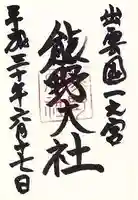 出雲國一之宮
熊野大社
平成三十年六月十七日